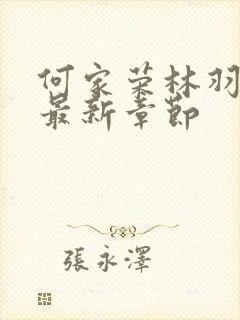 何家荣林羽
最新章节
張永澤